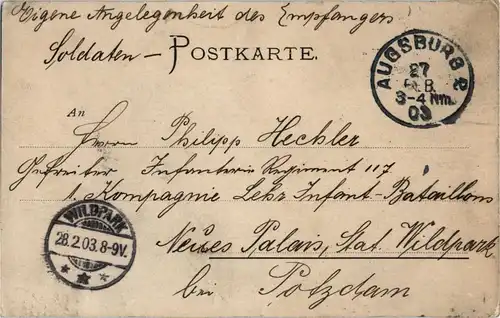 Eigene Angelegenheit des Empfängers
Soldaten - POSTKARTE.
AUGSBURG 2
27
FEB.
3-4 Nm.
03
An
Herrn Philipp Hechler
Gefreiter Infanterie Regiment 117
1. Kompagnie Lehr Infant-Bataillons
Neues Palais, Stat. Wildpark
bei Potzdam
WILDPARK
28.2.03.8-9V.